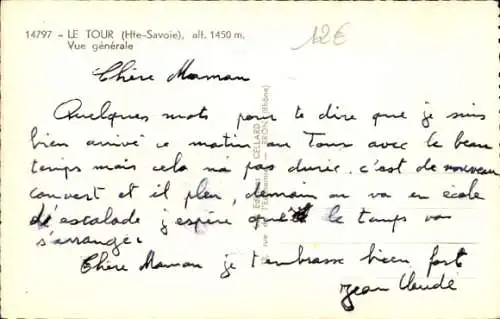 14797 - LE TOUR (Hte-Savoie), alt. 1450 m.
Vue générale
12€
Chère Maman
Quelques mots pour te dire que je suis
bien arrivé ce matin au Tour avec le beau
temps mais cela n'a pas durée. c'est de nouveau
couvert et il pleu, demain on va en école
d'escalade j'espère que le temps va
s'arranger
Chère Maman je t'embrasse bien fort
Jean Claude
CELLARD
BRON (Rhône)